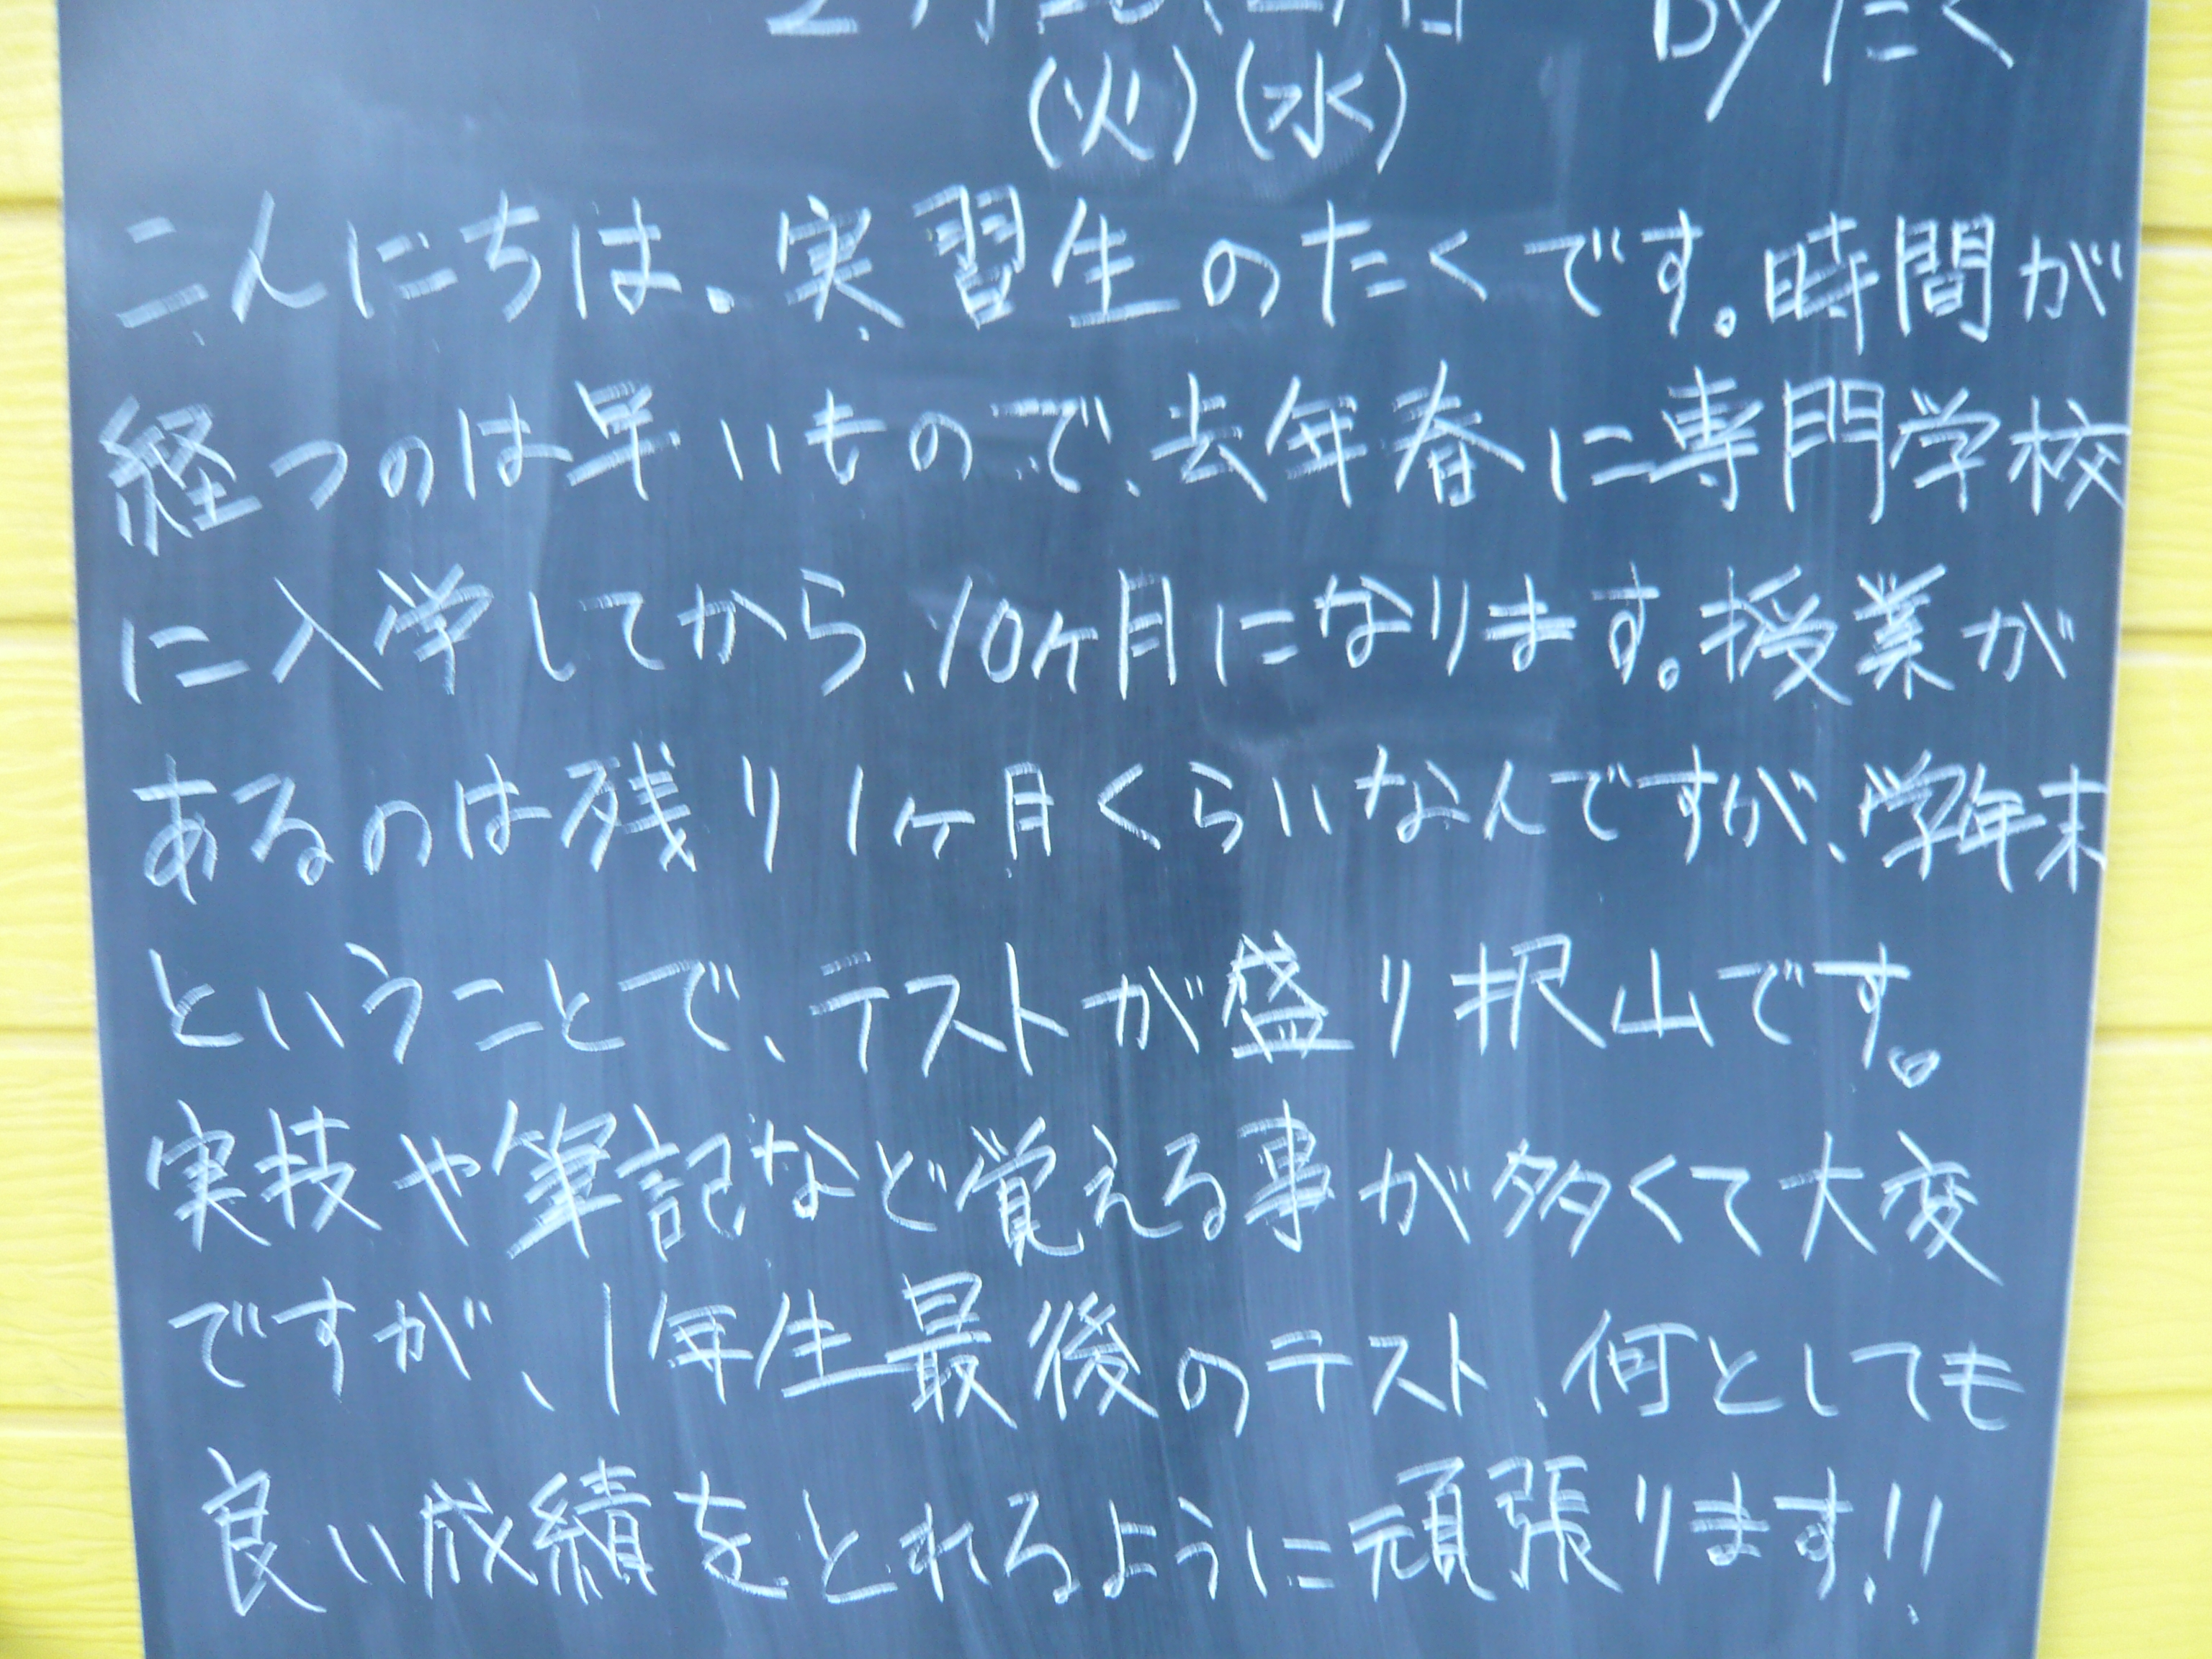 by たく
(火)(水)
こんにちは、実習生のたくです。時間が
経つのは早いもので、去年春に専門学校
に入学してから、10ヶ月になります。授業が
あるのは残り1ヶ月くらいなんですが、学年末
ということで、テストが盛り沢山です。
実技や筆記など覚える事が多くて大変
ですが、1年生最後のテスト、何としても
良い成績をとれるように頑張ります!!